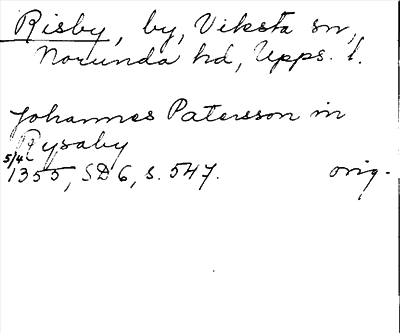 Risby, by, Viksta sn,
Norunda hd, Upps. l.
Johannes Patersson in
Rysaby
5/4
1355, SD 6, s. 547.
orig.